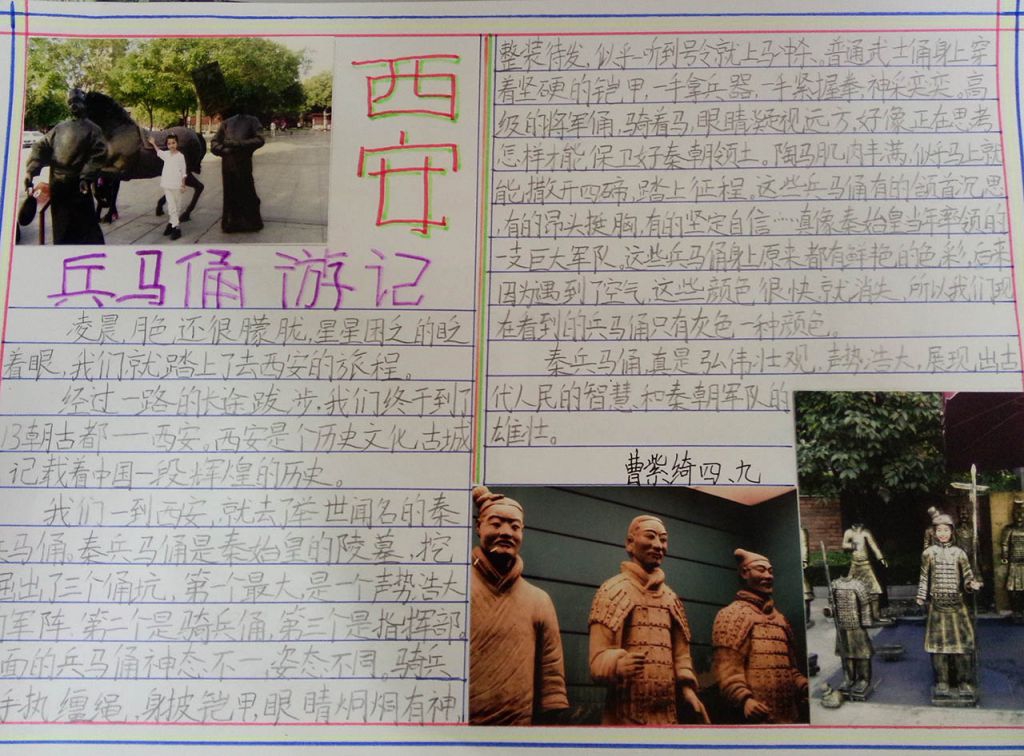 西安
兵马俑游记
凌晨,月色还很朦胧,星星困乏的眨
着眼,我们就踏上了去西安的旅程。
经过一路的长途跋涉,我们终于到了
13朝古都——西安。西安是个历史文化古城
记载着中国一段辉煌的历史。
我们一到西安,就去了举世闻名的秦
兵马俑。秦兵马俑是秦始皇的陵墓,挖
掘出了三个俑坑,第一个最大,是一个声势浩大
军阵,第二个是骑兵俑,第三个是指挥部。
面的兵马俑神态不一,姿态不同。骑兵
手执缰绳,身披铠甲,眼睛炯炯有神,
整装待发,似乎一听到号令就上马冲杀。普通武士俑身上穿
着坚硬的铠甲,一手拿兵器,一手紧握拳,神采奕奕。高
级的将军俑,骑着马,眼睛凝视远方,好像正在思考
怎样才能保卫好秦朝领土。陶马肌肉丰满,似乎马上就
能撒开四蹄,踏上征程。这些兵马俑有的颔首沉思
,有的昂头挺胸,有的坚定自信……真像秦始皇当年率领的
一支巨大军队。这些兵马俑身上原来都有鲜艳的色彩,后来
因为遇到了空气,这些颜色很快就消失,所以我们现
在看到的兵马俑只有灰色一种颜色。
秦兵马俑真是弘伟壮观,声势浩大,展现出古
代人民的智慧和秦朝军队的
雄壮。
曹紫绮四、九